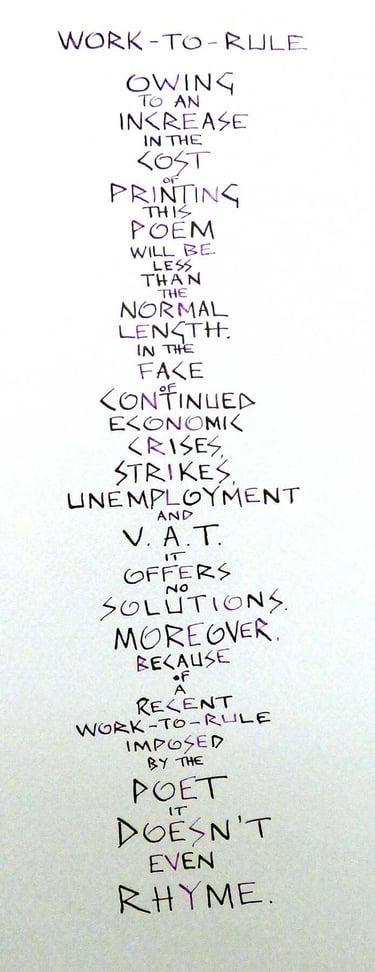 WORK-TO-RULE
OWING
TO AN
INCREASE
IN THE
COST
OF
PRINTING
THIS
POEM
WILL BE
LESS
THAN
THE
NORMAL
LENGTH.
IN THE
FACE
OF
CONTINUED
ECONOMIC
CRISES,
STRIKES,
UNEMPLOYMENT
AND
V. A. T.
IT
OFFERS
NO
SOLUTIONS.
MOREOVER,
BECAUSE
OF
A
RECENT
WORK-TO-RULE
IMPOSED
BY THE
POET
IT
DOESN'T
EVEN
RHYME.